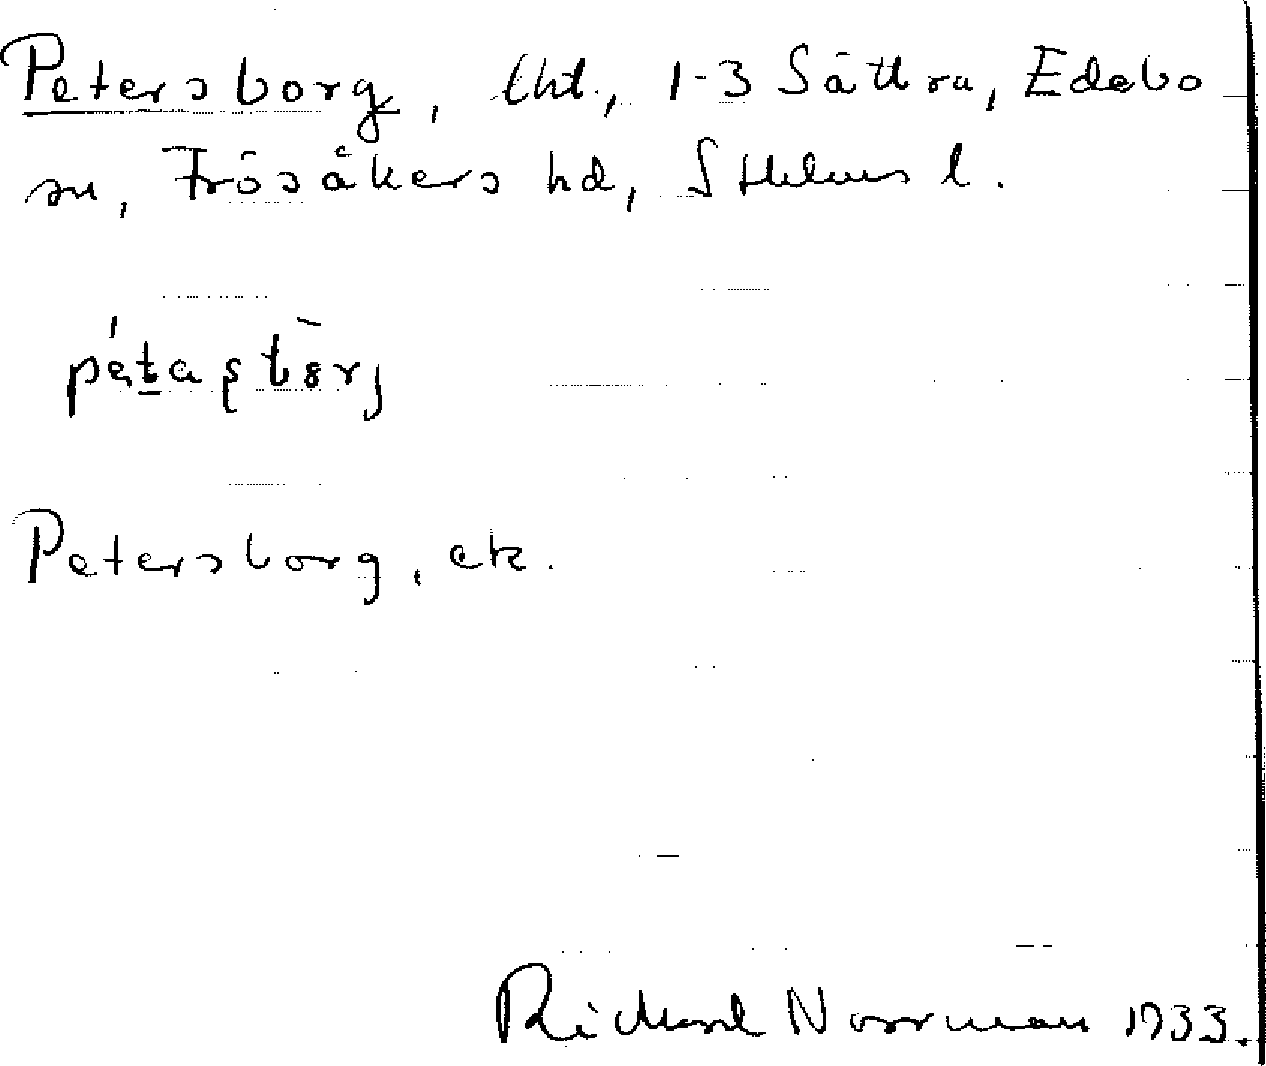 Petersborg, lht., 1-3 Sättra, Edebo
sn, Frösåkers hd, Sthlms l.
Petersborg, ek.
Richard Norrman 1933.